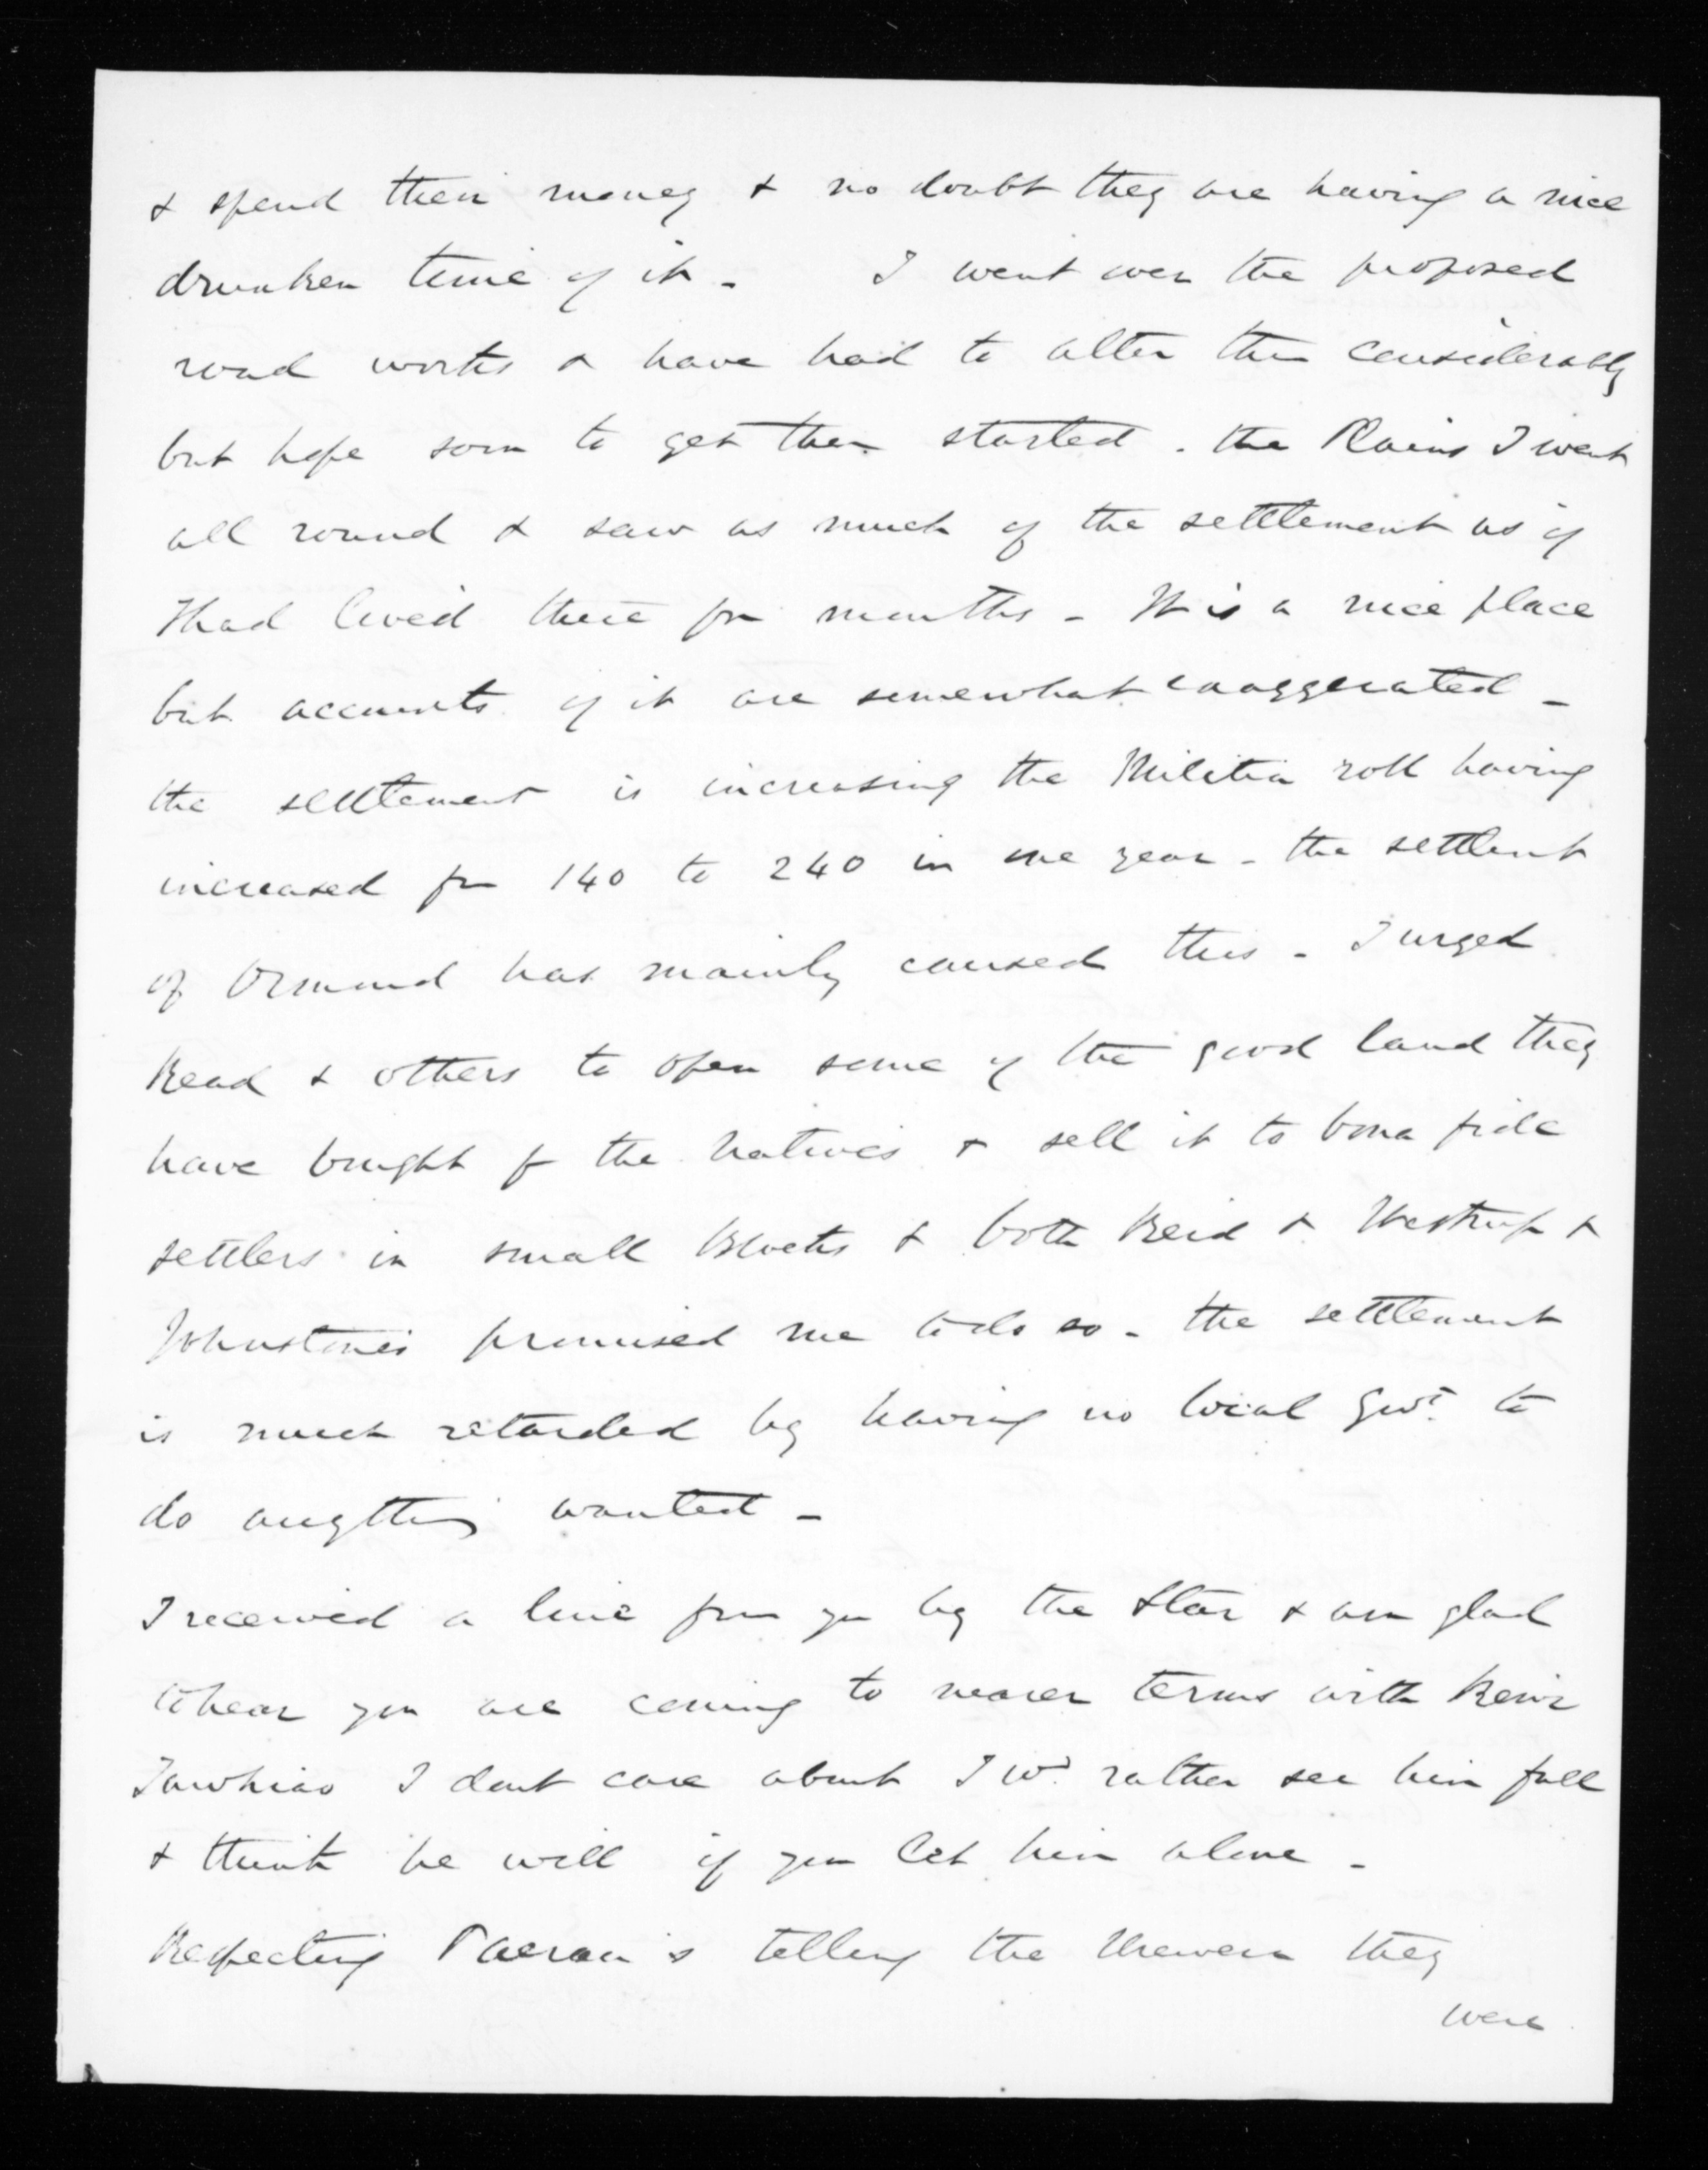 & spend their money & no doubt they are having a nice
drunken time of it - I went over the proposed
road works & have had to alter them considerably
but hope soon to get them started . the Plains I went
all round & saw as much of the settlement as if
I had lived there for months - It is a nice place
but accounts of it are somewhat exaggerated -
the settlement is increasing the Militia roll having
increased fm 140 to 240 in one year - the settlent
of Ormond has mainly caused this - I urged
Read & others to open some of the good land they
have bought f the Natives & sell it to bona fide
settlers in small Blocks & both Reid & Westrup &
Johnstones promised me to do so - the settlement
is much retarded by having no local Govt. to
do anything wanted -
I received a line from you by the Star & am glad
to hear you are coming to nearer terms with Rewi
Tawhiao I dont care about I wd. rather see him fall
& think he will if you let him alone -
Respecting Paerau's telling the Urewera they
were